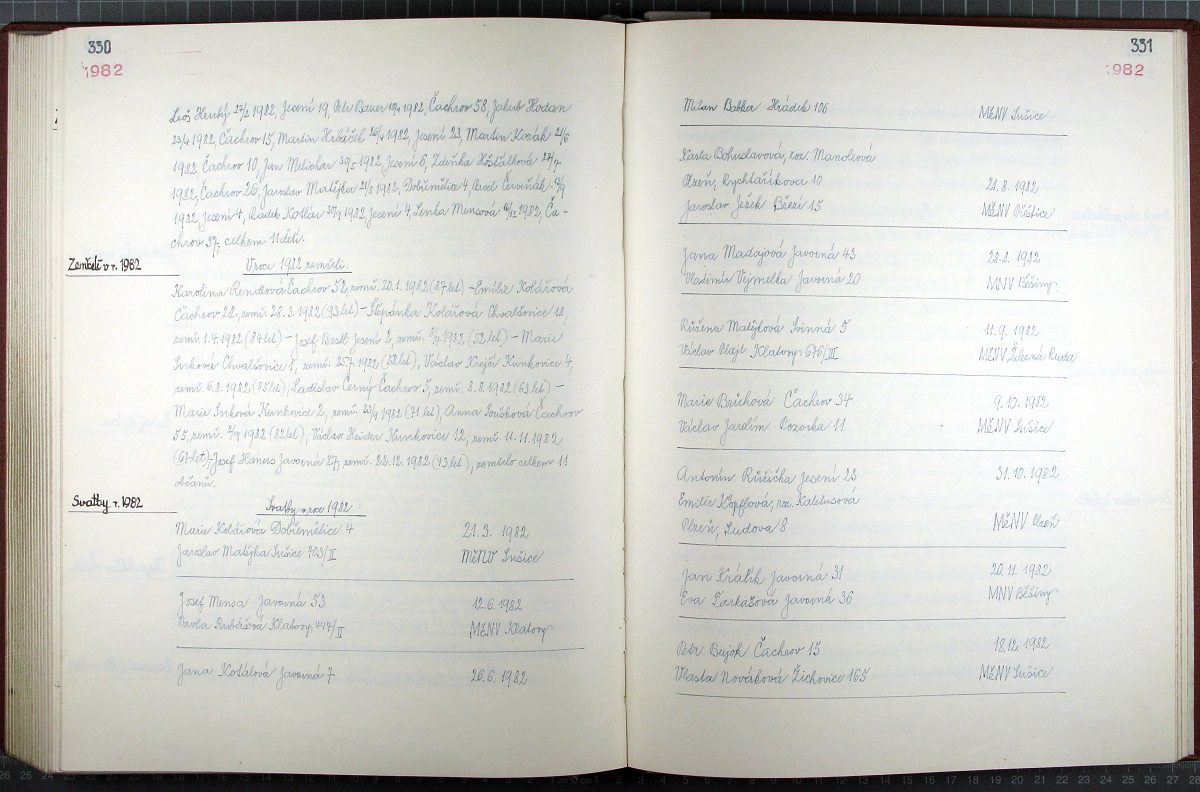 330
1982
Leoš Hrubý 27/2 1982, Jesení 19, Petr Bauer 10/4 1982, Čachrov 58, Jakub Hodan
23/4 1982, Čachrov 15, Martin Hrbáček 26/4 1982, Jesení 23, Martin Kozák 21/6
1982, Čachrov 10, Jan Melichar 30/5 1982, Jesení 6, Zdeňka Hošťálková 24/7
1982, Čachrov 26, Jaroslav Matějka 21/8 1982, Dobřemělice 4, Pavel Červeňák 13/9
1982, Jesení 4, Radek Kotlár 30/9 1982, Jesení 4, Lenka Mensová 16/12 1982, Ča-
chrov 57, celkem 11 dětí.
Zemřelí v r. 1982
V roce 1982 zemřeli:
Karolina Rendlová Čachrov 52, zemř. 20.1.1982 (87 let) – Emilie Kolářová
Čachrov 22, zemř. 28.3.1982 (93 let) – Štěpánka Kolářová Chvalšovice 18,
zemř. 1.4.1982 (84 let) – Josef Bastl Jesení 2, zemř. 2/7 1982 (52 let) – Marie
Sirková Chvalšovice 1, zemř. 25.7.1982 (52 let), Václav Krejčí Kunkovice 4,
zemř. 6.8.1982 (85 let), Ladislav Černý Čachrov 5, zemř. 8.8.1982 (63 let) –
Marie Sirková Kunkovice 2, zemř. 23/9 1982 (71 let), Anna Součková Čachrov
55, zemř. 2/9 1982 (82 let), Václav Heider Kunkovice 12, zemř. 11.11.1982
(67 let), Josef Haners Javorná 27, zemř. 22.12.1982 (73 let), zemřelo celkem 11
občanů.
Svatby r. 1982
Svatby v roce 1982:
Marie Kolářová Dobřemělice 4 21.3. 1982
Jaroslav Matějka Sušice 723/II MěNV Sušice
Josef Mensa Javorná 53 12.6.1982
Pavla Rubášová Klatovy 447/II MěNV Klatovy
Jana Košálová Javorná 7 26.6.1982
331
1982
Milan Babka Hrádek 106 MěNV Sušice
Karla Bohuslavová, roz. Mandlová
Plzeň, Rychtaříkova 10 21.8.1982
Jaroslav Ježek Březí 15 MěNV Přeštice
Jana Madajová Javorná 43 28.8.1982
Vladimír Vejmelka Javorná 20 MNV Běšiny
Růžena Matějková Svinná 5 11.9.1982
Václav Plajt Klatovy 676/III MěNV Železná Ruda
Marie Brůhová Čachrov 34 9.10.1982
Václav Jarolím Pozorka 11 MěNV Sušice
Antonín Růžička Jesení 23 31.10.1982
Emilie Köpflová, roz. Kaldusová
Plzeň, Sudova 8 MěNV Plzeň
Jan Králík Javorná 31 20.11.1982
Eva Farkašová Javorná 36 MNV Běšiny
Petr Bujok Čachrov 15 18.12.1982
Vlasta Nováková Žichovice 165 MěNV Sušice